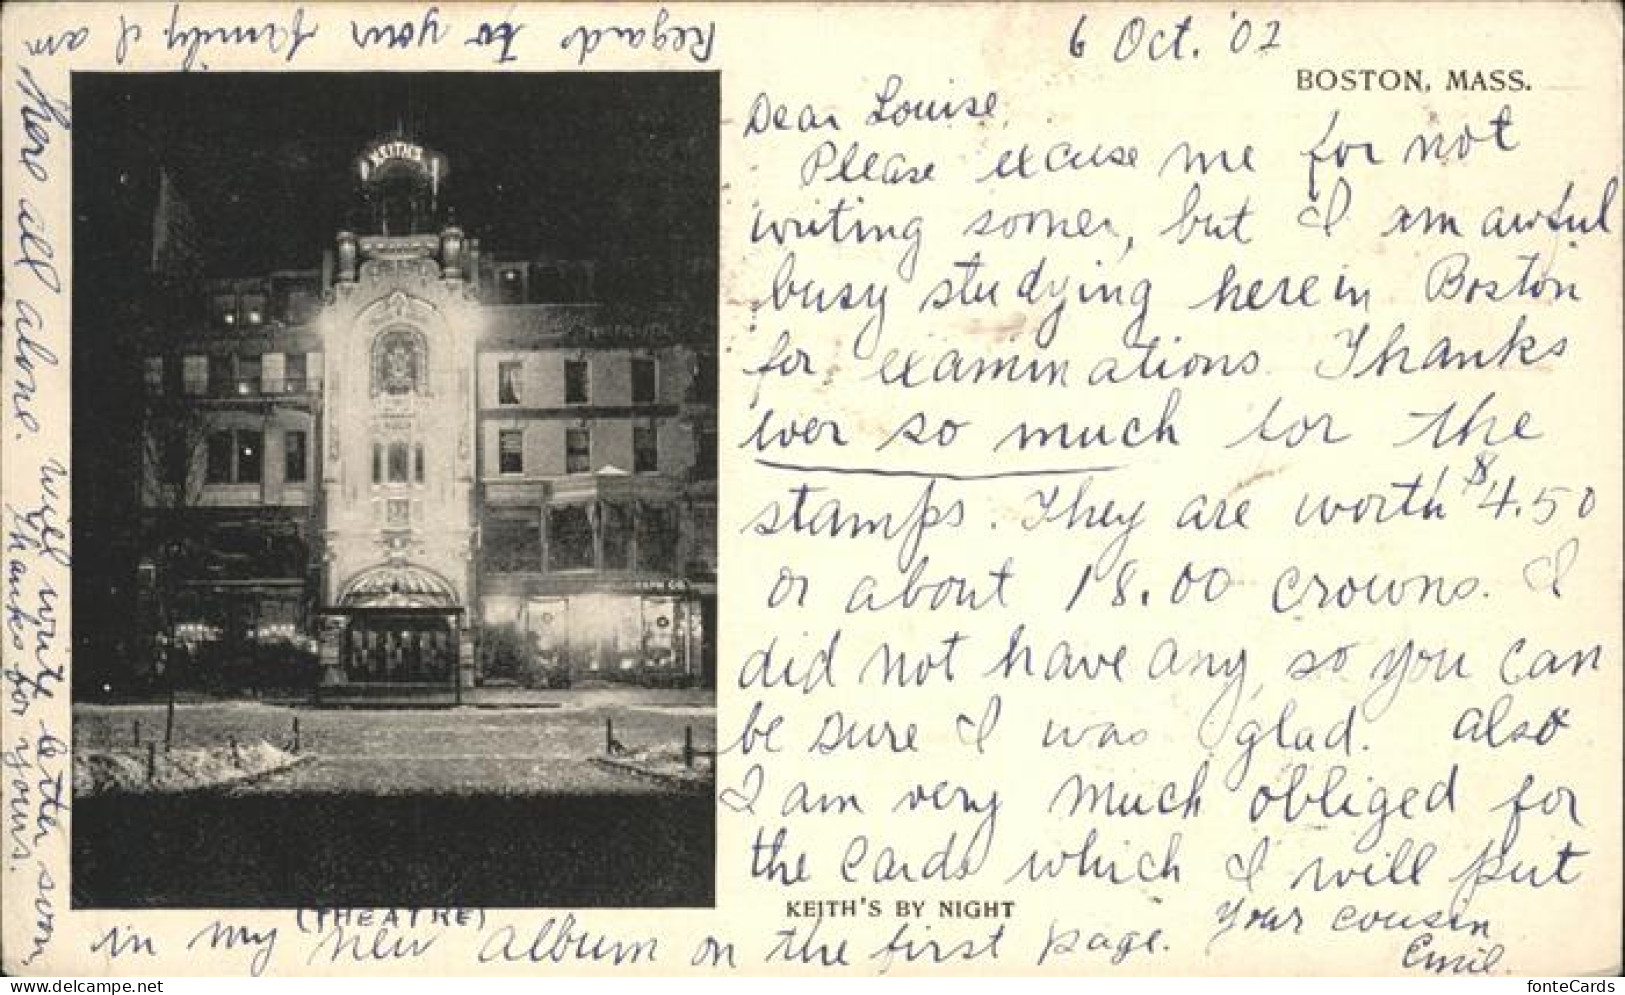 6 Oct. '02
BOSTON, MASS.
Dear Louise,
Please excuse me for not
writing sooner, but I am awful
busy studying here in Boston
for examinations. Thanks
ever so much for the
stamps. They are worth $4.50
or about 18.00 crowns. I
did not have any, so you can
be sure I was glad. also
I am very much obliged for
the cards which I will put
in my new album on the first page.
Your cousin
Emil.
Regards to your family, I am
here all alone. Will write letter soon.
Thanks for yours.
KEITH'S
(THEATRE)
KEITH'S BY NIGHT
delcampe.net
fonteCards